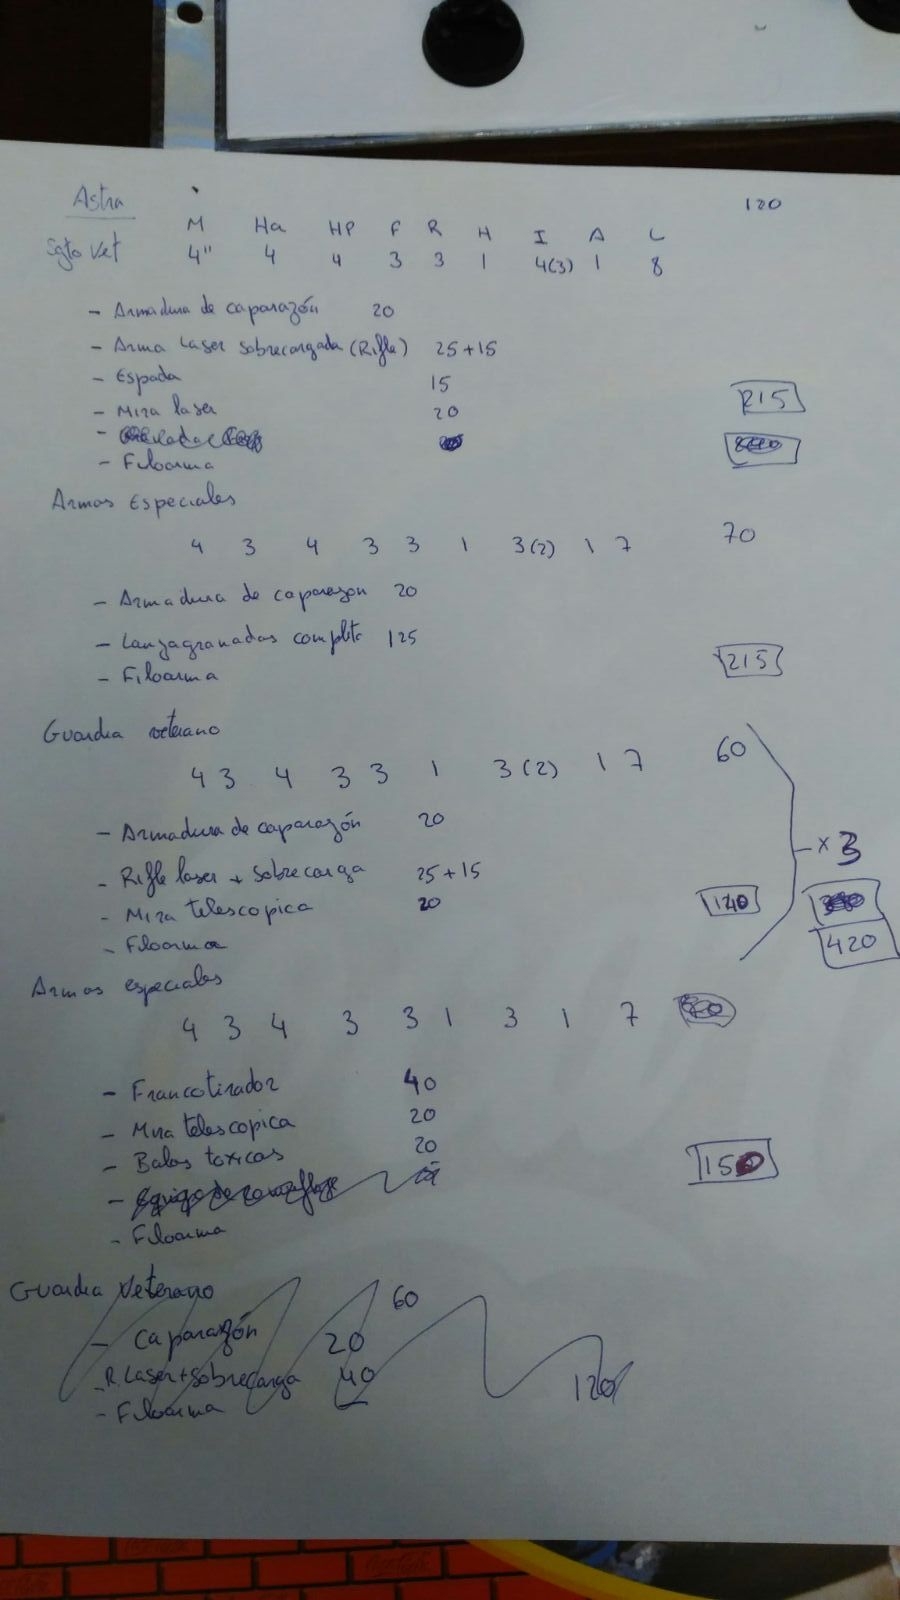 Astra 120
M Ha HP F R H I A L
Sgto Vet 4" 4 4 3 3 1 4(3) 1 8
- Armadura de caparazón 20
- Arma laser sobrecargada (Rifle) 25+15
- Espada 15
- Mira laser 20 215
- Filoarma
Armas Especiales
4 3 4 3 3 1 3(2) 1 7 70
- Armadura de caparazon 20
- Lanzagranadas completo 125
- Filoarma 215
Guardia veterano
4 3 4 3 3 1 3(2) 1 7 60
- Armadura de caparazón 20
- x 3
- Rifle laser + sobrecarga 25+15
- Mira telescopica 20 140
- Filoarma 420
Armas especiales
4 3 4 3 3 1 3 1 7
- Francotirador 40
- Mira telescopica 20
- Balas toxicas 20 150
- Filoarma
Guardia Veterano 60
- Caparazón 20
- R. Laser + sobrecarga 40 120
- Filoarma